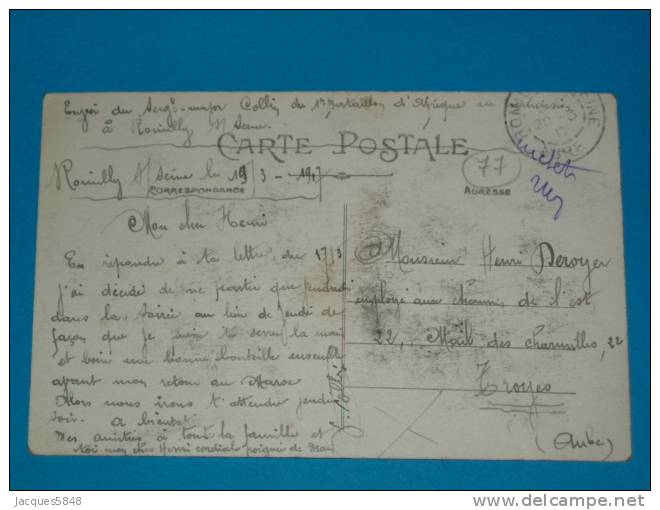 Envoi du Serg^t-major Collin du 1^er Bataillon d'Afrique en permission
à Romilly s/ Seine
CARTE POSTALE
Romilly s/ Seine le 19/3 - 1917
CORRESPONDANCE
77
ADRESSE
Mon cher Henri
En reponche à ta lettre du 17/3
j'ai décidé de ne partir que vendredi
dans la soirée au lieu de Jeudi de
façon que je te serre la main
et boire une bonne bouteille ensemble
avant mon retour au Maroc
Alors nous irons t'attendre jeudi
soir. A bientôt
Mes amitiés à toute la famille et
toi mon cher Henri cordial poignée de main
Monsieur Henri Deroyer
employé aux chemins de l'est
22, Mail des Charmilles, 22
Troyes
(Aube)
Jacques5848
delcampe.net